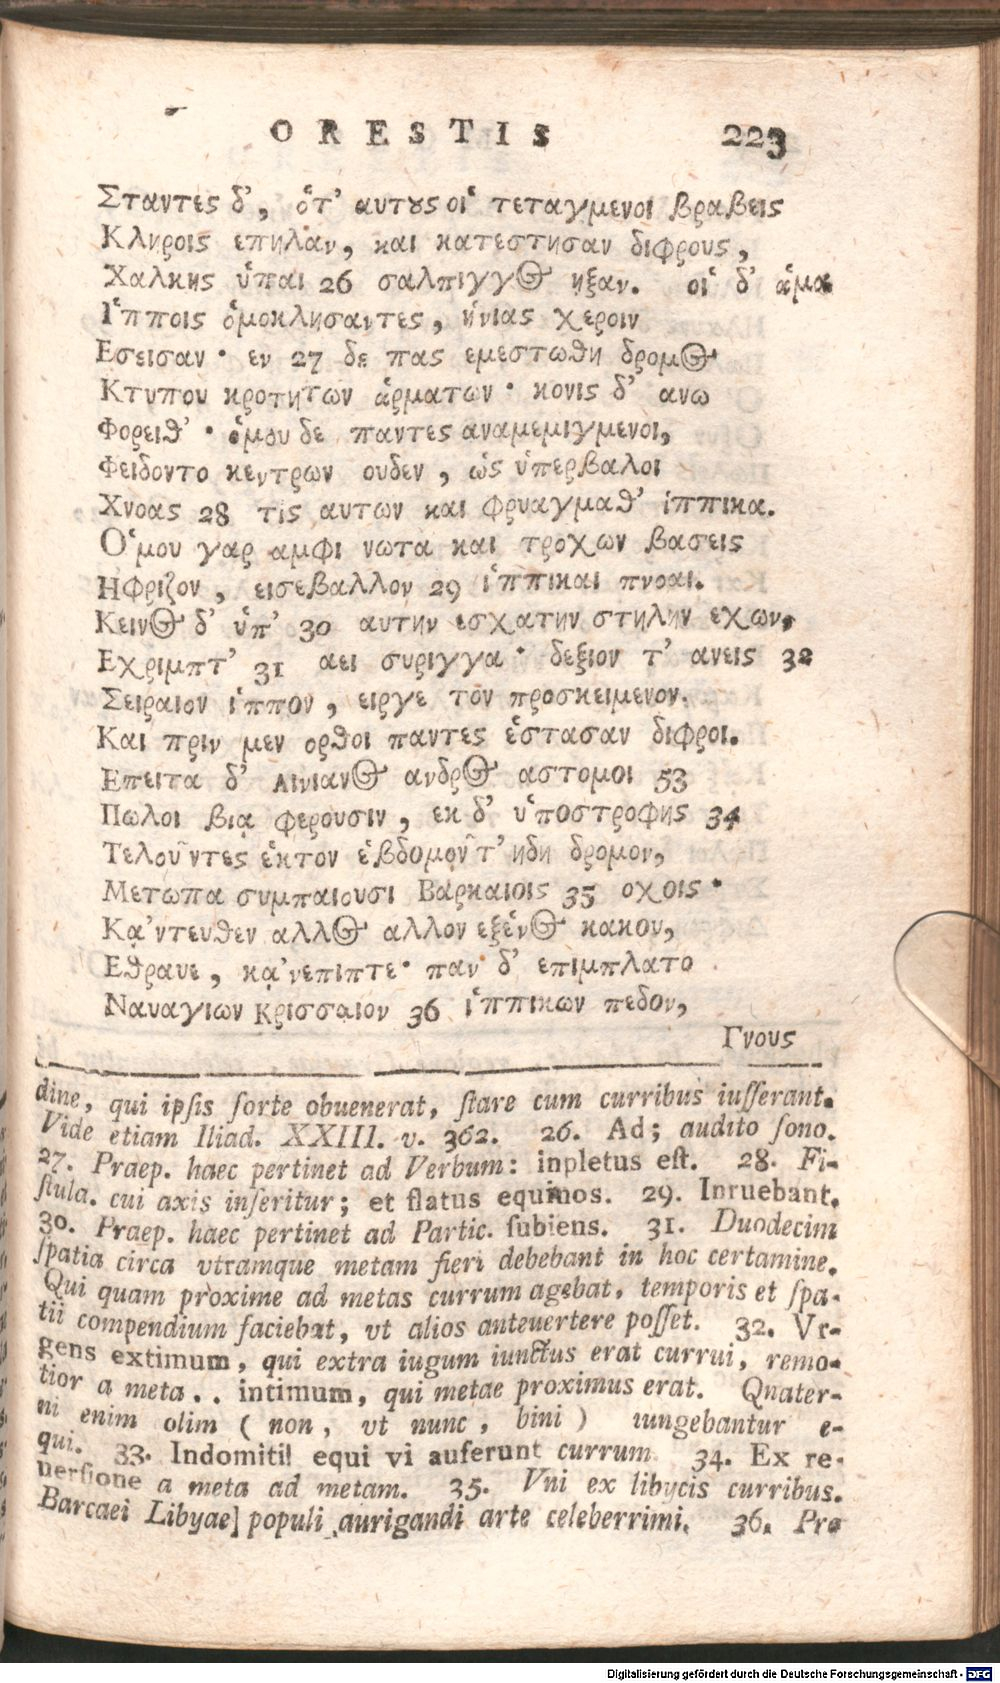 ORESTIS 223
Σταντες δ’, ὁτ’ αυτους οἱ τεταγμενοι βραβεις
Κληροις επηλαν, και κατεστησαν διφρους,
Χαλκης ὑπαι 26 σαλπιγγος ηξαν. οἱ δ’ ἁμα
Ἱπποις ὁμοκλησαντες, ἡνιας χεροιν
Εσεισαν· εν 27 δε πας εμεστωθη δρομος
Κτυπου κροτητων ἁρματων· κονις δ’ ανω
Φορειθ’· ὁμου δε παντες αναμεμιγμενοι,
Φειδοντο κεντρων ουδεν, ὡς ὑπερβαλοι
Χνοας 28 τις αυτων και φρυαγμαθ’ ἱππικα.
Ὁμου γαρ αμφι νωτα και τροχων βασεις
Ηφριζον, εισεβαλλον 29 ἱππικαι πνοαι.
Κεινος δ’ ὑπ’ 30 αυτην εσχατην στηλην εχων,
Εχριμπτ’ 31 αει συριγγα· δεξιον τ’ ανεις 32
Σειραιον ἱππον, ειργε τον προσκειμενον.
Και πριν μεν ορθοι παντες ἑστασαν διφροι.
Επειτα δ’ Αινιανος ανδρος αστομοι 53
Πωλοι βιᾳ φερουσιν, εκ δ’ ὑποστροφης 34
Τελουντες ἑκτον ἑβδομον τ’ ηδη δρομον,
Μετωπα συμπαιουσι Βαρκαιοις 35 οχοις·
Κᾳ’ντευθεν αλλος αλλον εξ ἑνος κακου,
Εθραυε, κᾳ’νεπιπτε· παν δ’ επιμπλατο
Ναυαγιων Κρισσαιον 36 ἱππικων πεδον,
Γνους
dine, qui ipsis sorte obuenerat, stare cum curribus iusserant.
Vide etiam Iliad. XXIII. v. 362. 26. Ad; audito sono.
27. Praep. haec pertinet ad Verbum: inpletus est. 28. Fi-
stula. cui axis inseritur; et flatus equinos. 29. Inruebant.
30. Praep. haec pertinet ad Partic. subiens. 31. Duodecim
spatia circa vtramque metam fieri debebant in hoc certamine.
Qui quam proxime ad metas currum agebat, temporis et spa-
tii compendium faciebat, vt alios anteuertere posset. 32. Vr-
gens extimum, qui extra iugum iunctus erat currui, remo-
tior a meta . . intimum, qui metae proximus erat. Quater-
ni enim olim (non, vt nunc, bini) iungebantur e-
qui. 33. Indomiti equi vi auferunt currum 34. Ex re-
uersione a meta ad metam. 35. Vni ex libycis curribus.
Barcaei Libyae] populi aurigandi arte celeberrimi. 36. Pro
Digitalisierung gefördert durch die Deutsche Forschungsgemeinschaft - DFG